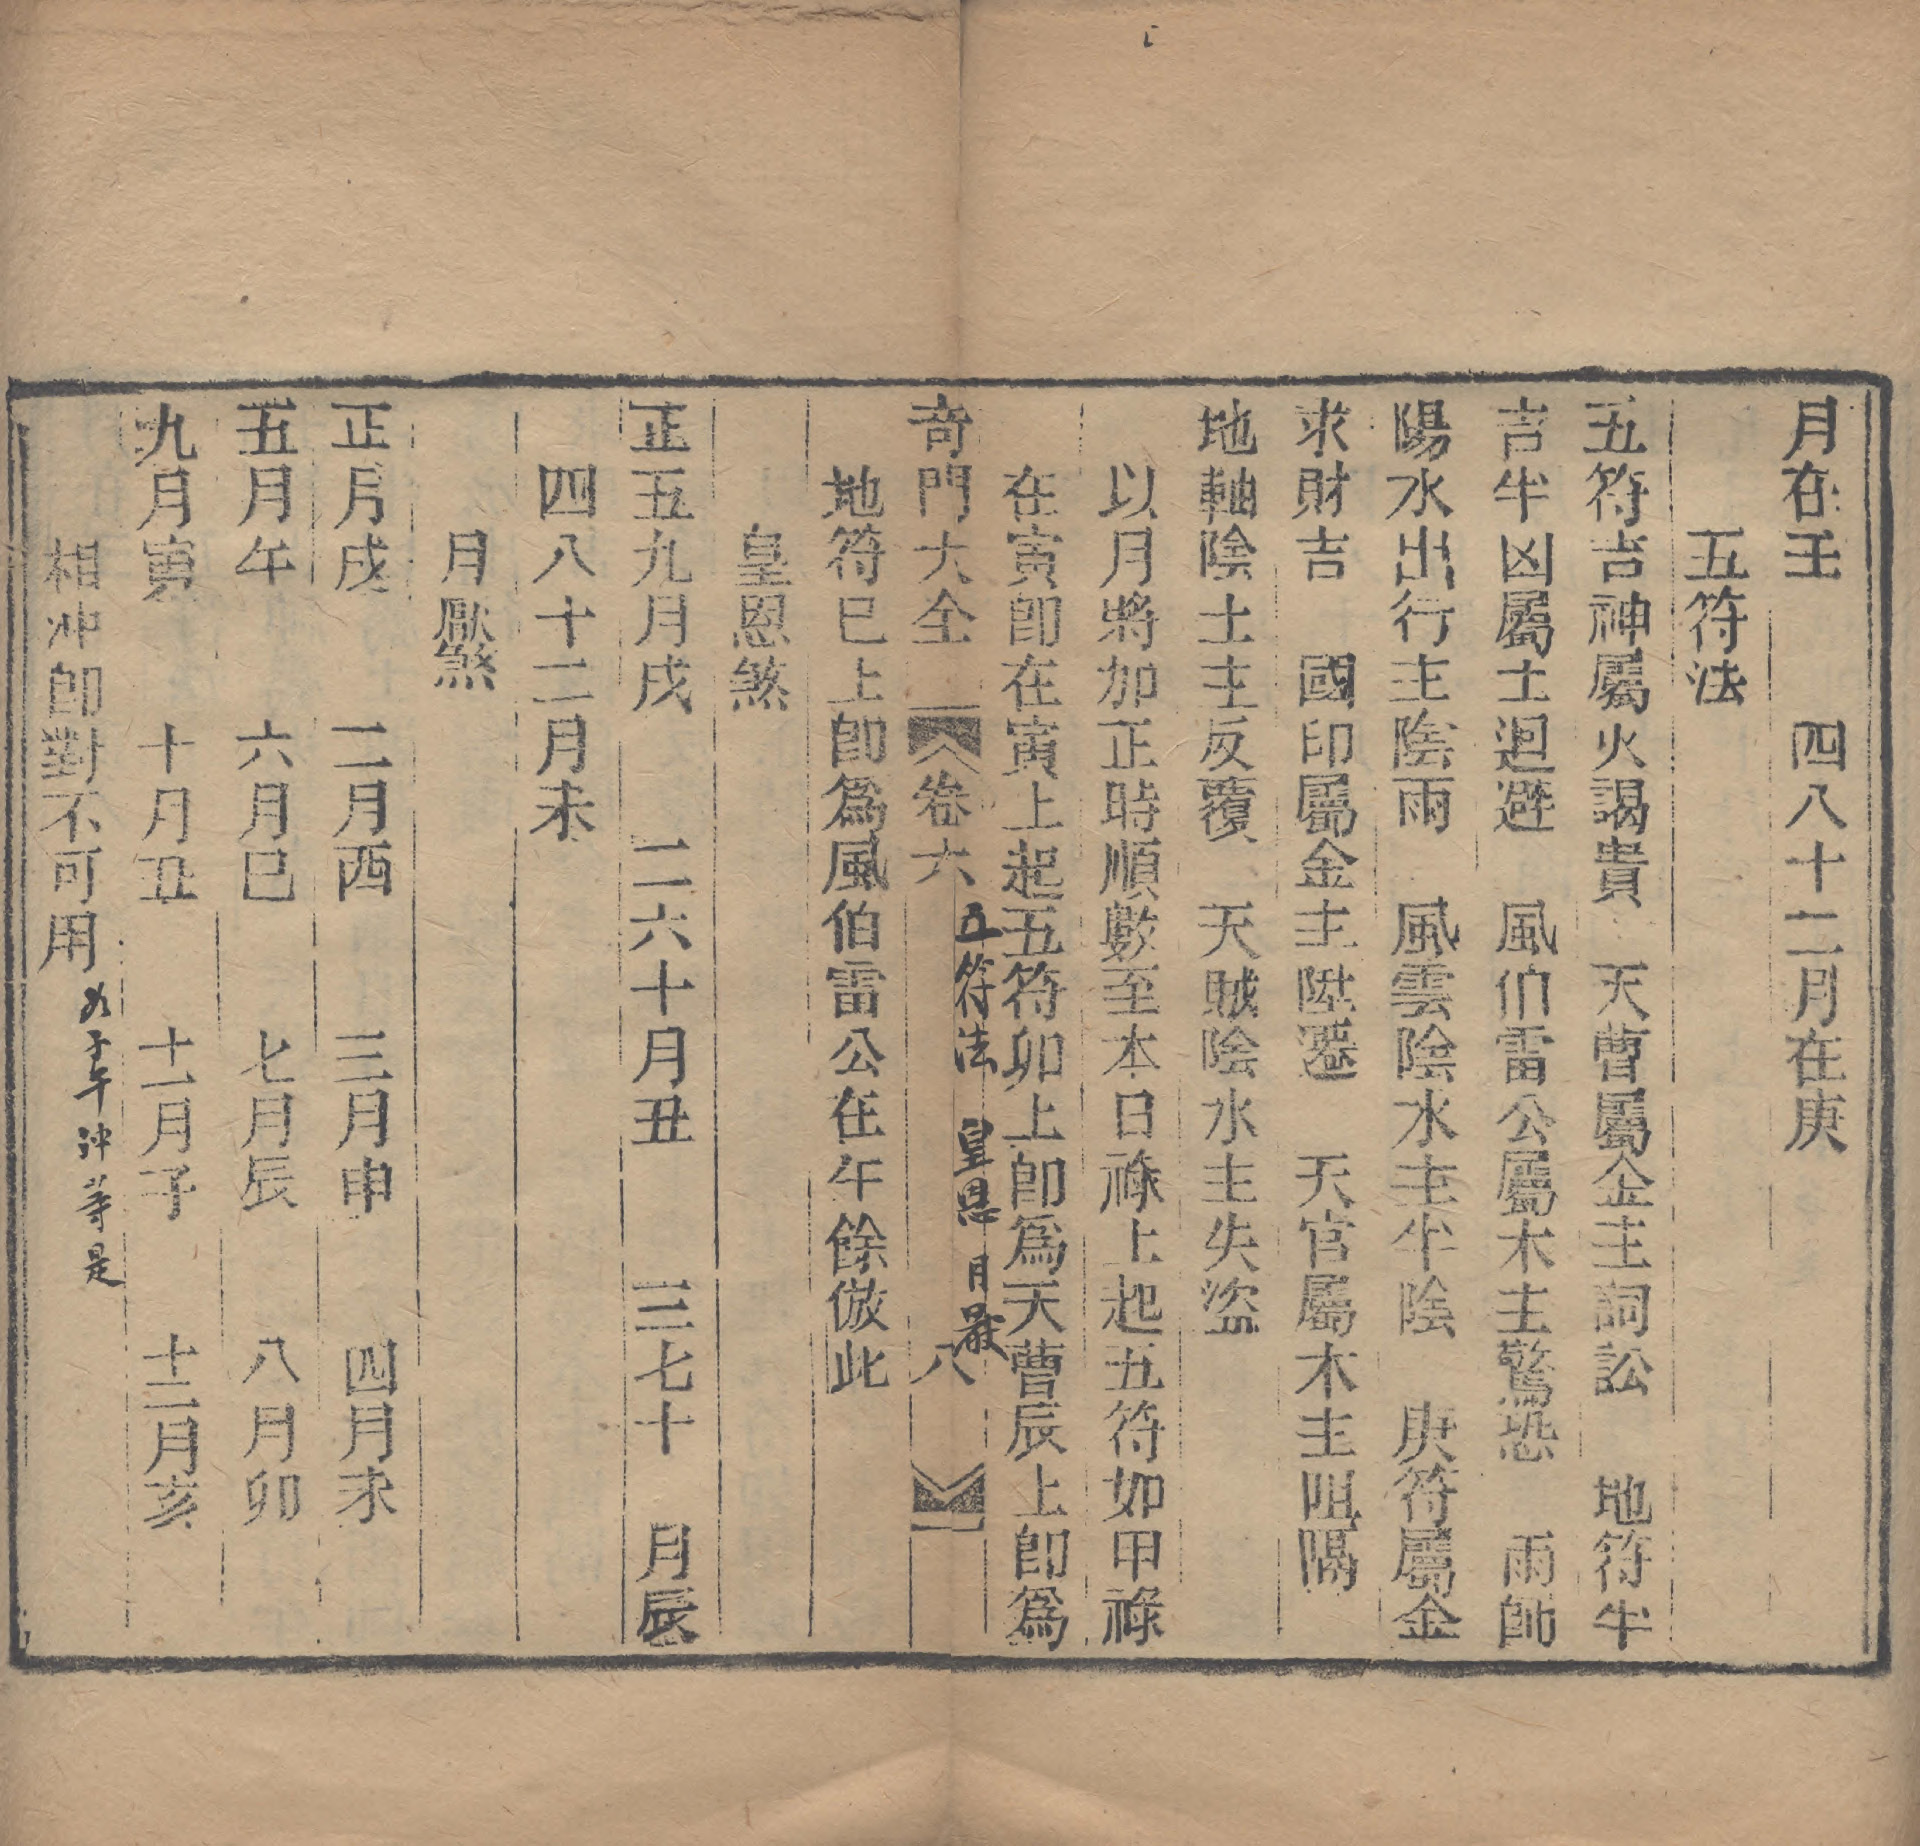 月在壬　　四八十二月在庚
五符法
五符吉神屬火謁貴　天曹屬金主詞訟　地符半
吉半凶屬土迴避　風伯雷公屬木主驚恐　雨師
陽水出行主陰雨　風雲陰水主半陰　庚符屬金
求財吉　國印屬金主陞遷　天官屬木主阻隔
地軸陰土主反覆　天賊陰水主失盜
以月將加正時順數至本日祿上起五符如甲祿
在寅卽在寅上起五符卯上卽爲天曹辰上卽爲
奇門大全　卷六　八
五符法　皇恩　月厭
地符巳上卽爲風伯雷公在午餘倣此
皇恩煞
正五九月戌　二六十月丑　三七十　月辰
四八十二月未
月厭煞
正月戌　二月酉　三月申　四月未
五月午　六月巳　七月辰　八月卯
九月寅　十月丑　十一月子　十二月亥
相冲卽對不可用
如子午冲等是